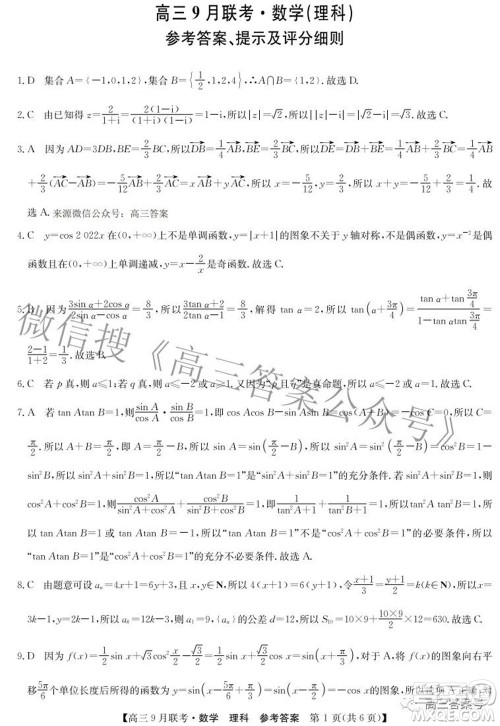 高三9月联考·数学(理科)
参考答案、提示及评分细则
1. D 集合A={-1,0,1,2},集合B={1/2,1,2,4},∴A∩B={1,2}.故选D.
2. C 由已知得z=2/(1+i)=2(1-i)/((1+i)(1-i))=1-i,所以|z|=√2,所以||z|-i|=|√2-i|=√3.故选C.
3. A 因为AD=3DB,BE=2/3BC,所以DB=1/4AB,BE=2/3BC,所以DE=DB+BE=1/4AB+2/3BC=1/4AB
+2/3(AC-AB)=-5/12AB+2/3AC=xAB+yAC,所以x=-5/12,y=2/3,所以x+y=-5/12+2/3=1/4.故
选A.来源微信公众号:高三答案
4. C y=cos 2 022x在(0,+∞)上不是单调函数,y=|x+1|的图象不关于y轴对称,不是偶函数,y=x⁻²是偶
函数且在(0,+∞)上单调递减,y=x-2/x是奇函数.故选C.
因为(3sin α+2cos α)/(sin α+cos α)=8/3,所以(3tan α+2)/(tan α+1)=8/3,解得tan α=2,所以tan(α+3π/4)=(tan α+tan 3π/4)/(1-tan αtan 3π/4)=
(2-1)/(1+2)=1/3.故选
6. C 若p真,则a≤1;若q真,则a≤-2或a≥1.又因为“p且q”是真命题,所以a≤-2或a=1.故选C.
7. A 若tan Atan B=1,则sin A/cos A·sin B/cos B=1,即cos Acos B-sin Asin B=cos(A+B)=-cos C=0,所以C=
π/2.所以A+B=π/2,即A=π/2-B,所以sin A=sin(π/2-B),所以sin²A=sin²(π/2-B)=cos²B=1-
sin²B,所以sin²A+sin²B=1,所以“tan Atan B=1”是“sin²A+sin²B=1”的充分条件.若sin²A+sin²B=1,则
cos²A+cos²B=1,则cos²A/(sin²A+cos²A)+cos²B/(sin²B+cos²B)=1,即1/(tan²A+1)+1/(tan²B+1)=1,所
以tan Atan B=1或tan Atan B=-1,所以“tan Atan B=1”不是“cos²A+cos²B=1”的必要条件,所以
“tan Atan B=1”是“cos²A+cos²B=1”的充分不必要条件.故选A.
8. C 由题意可设aₙ=4x+1=6y+3,且x,y∈N,所以4(x+1)=6(y+1),令(x+1)/3=(y+1)/2=k(k∈N),所以x=
3k-1,y=2k-1,所以aₙ=12k-3,则a₁=9,{aₙ}的公差d=12,所以S₁₀=10×9+(10×9)/2×12=630.故选C.
9. D 因为f(x)=1/2sin x+√3cos²x/2-√3/2=1/2sin x+√3/2cos x=sin(x+π/3),对于A,将f(x)的图象向右平
移5π/6个单位长度后所得的函数为y=sin(x-5π/6+π/3)=sin(x-π/2)=-cos x
【高三9月联考·数学 理科 参考答案 第1页(共6页)】
微信搜《高三答案公众号》
高三答案号